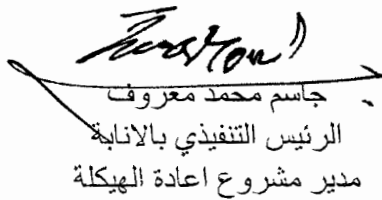 جاسم محمد معروف
الرئيس التنفيذي بالانابة
مدير مشروع اعادة الهيكلة